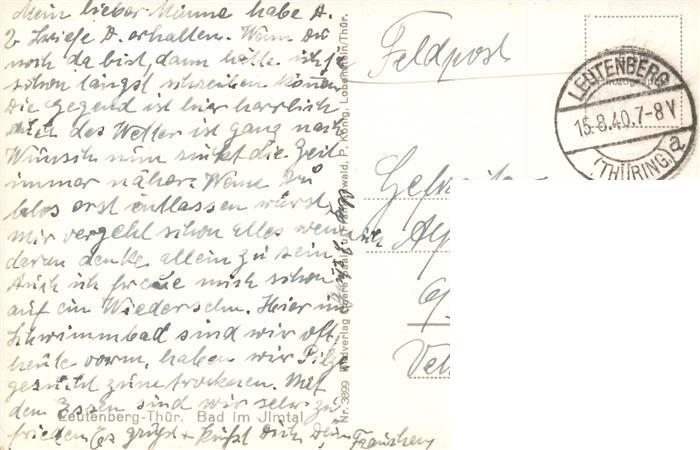 Mein lieber Männe habe D.
2 Briefe D. erhalten. Wenn Du
noch da bist, dann hätte ich ja
schon längst schreiben können
Die Gegend ist hier herrlich
auch das Wetter ist ganz nach
Wunsch nun rückt die Zeit
immer näher. Wenn Du
blos erst entlassen würst,
mir vergeht schon alles wenn ich
daran denke allein zu sein
Auch ich freue mich schon
auf ein Wiedersehn. Hier im
Schwimmbad sind wir oft,
heute vorm. haben wir Pilze
gesucht zum trocknen. Mit
dem Essen sind wir sehr zu
frieden. Es grüßt + küßt Dich Dein Frauchen
Leutenberg-Thür. Bad im Ilmtal
Nr. 3899 Bildverlag Obere Saale u. Frankenwald, P. König, Lobenstein/Thür.
Feldpost
LEUTENBERG
15.8.40.7-8V
(THÜRING.) a